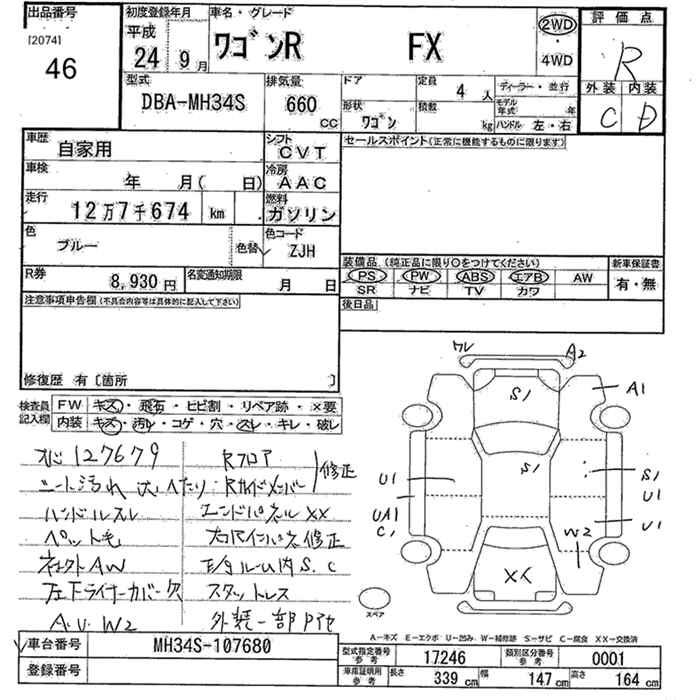 出品番号
[2074]
46
初度登録年月
平成
24 9月
車名・グレード
ワゴンR FX
2WD
・
4WD
評価点
R
外装 内装
C D
型式
DBA-MH34S
排気量
660
CC
ドア
形状
ワゴン
定員
4 人
積載
kg
ディーラー・並行
モデル年式 年
ハンドル 左・右
車歴
自家用
シフト
CVT
車検
年 月( 日)
冷房
AAC
走行
12万7千674 km
燃料
ガソリン
色
ブルー
色替
色コード
ZJH
R券
8,930円
名変通知期限
月 日
セールスポイント(正常に機能するものに限ります)
装備品(純正品に限り○をつけてください)
PS PW ABS エアB AW
SR ナビ TV カワ
新車保証書
有・無
後日品
注意事項申告欄(不具合内容等は具体的に記入して下さい)
修復歴 有〔箇所 〕
検査員
記入欄
FW キズ・飛石・ヒビ割・リペア跡・×要
内装 キズ・汚レ・コゲ・穴・スレ・キレ・破レ
127679
シート汚れ
ハンドルスレ
ペット毛
AW
左下ライナーカバー欠
A.U.W2
Rフロア
修正
Rサイドメンバー
エンドパネルXX
修正
ルーム内S.C
スタットレス
外装一部
ワレ
A2
S1
A1
S1
U1
UA1
C1
S1
U1
U1
W2
XX
スペア
A―キズ E―エクボ U―凹み W―補修跡 S―サビ C―腐食 XX―交換済
車台番号
MH34S-107680
登録番号
型式指定番号
参考
17246
類別区分番号
参考
0001
車庫証明用
参考
長さ 339cm 幅 147cm 高さ 164cm